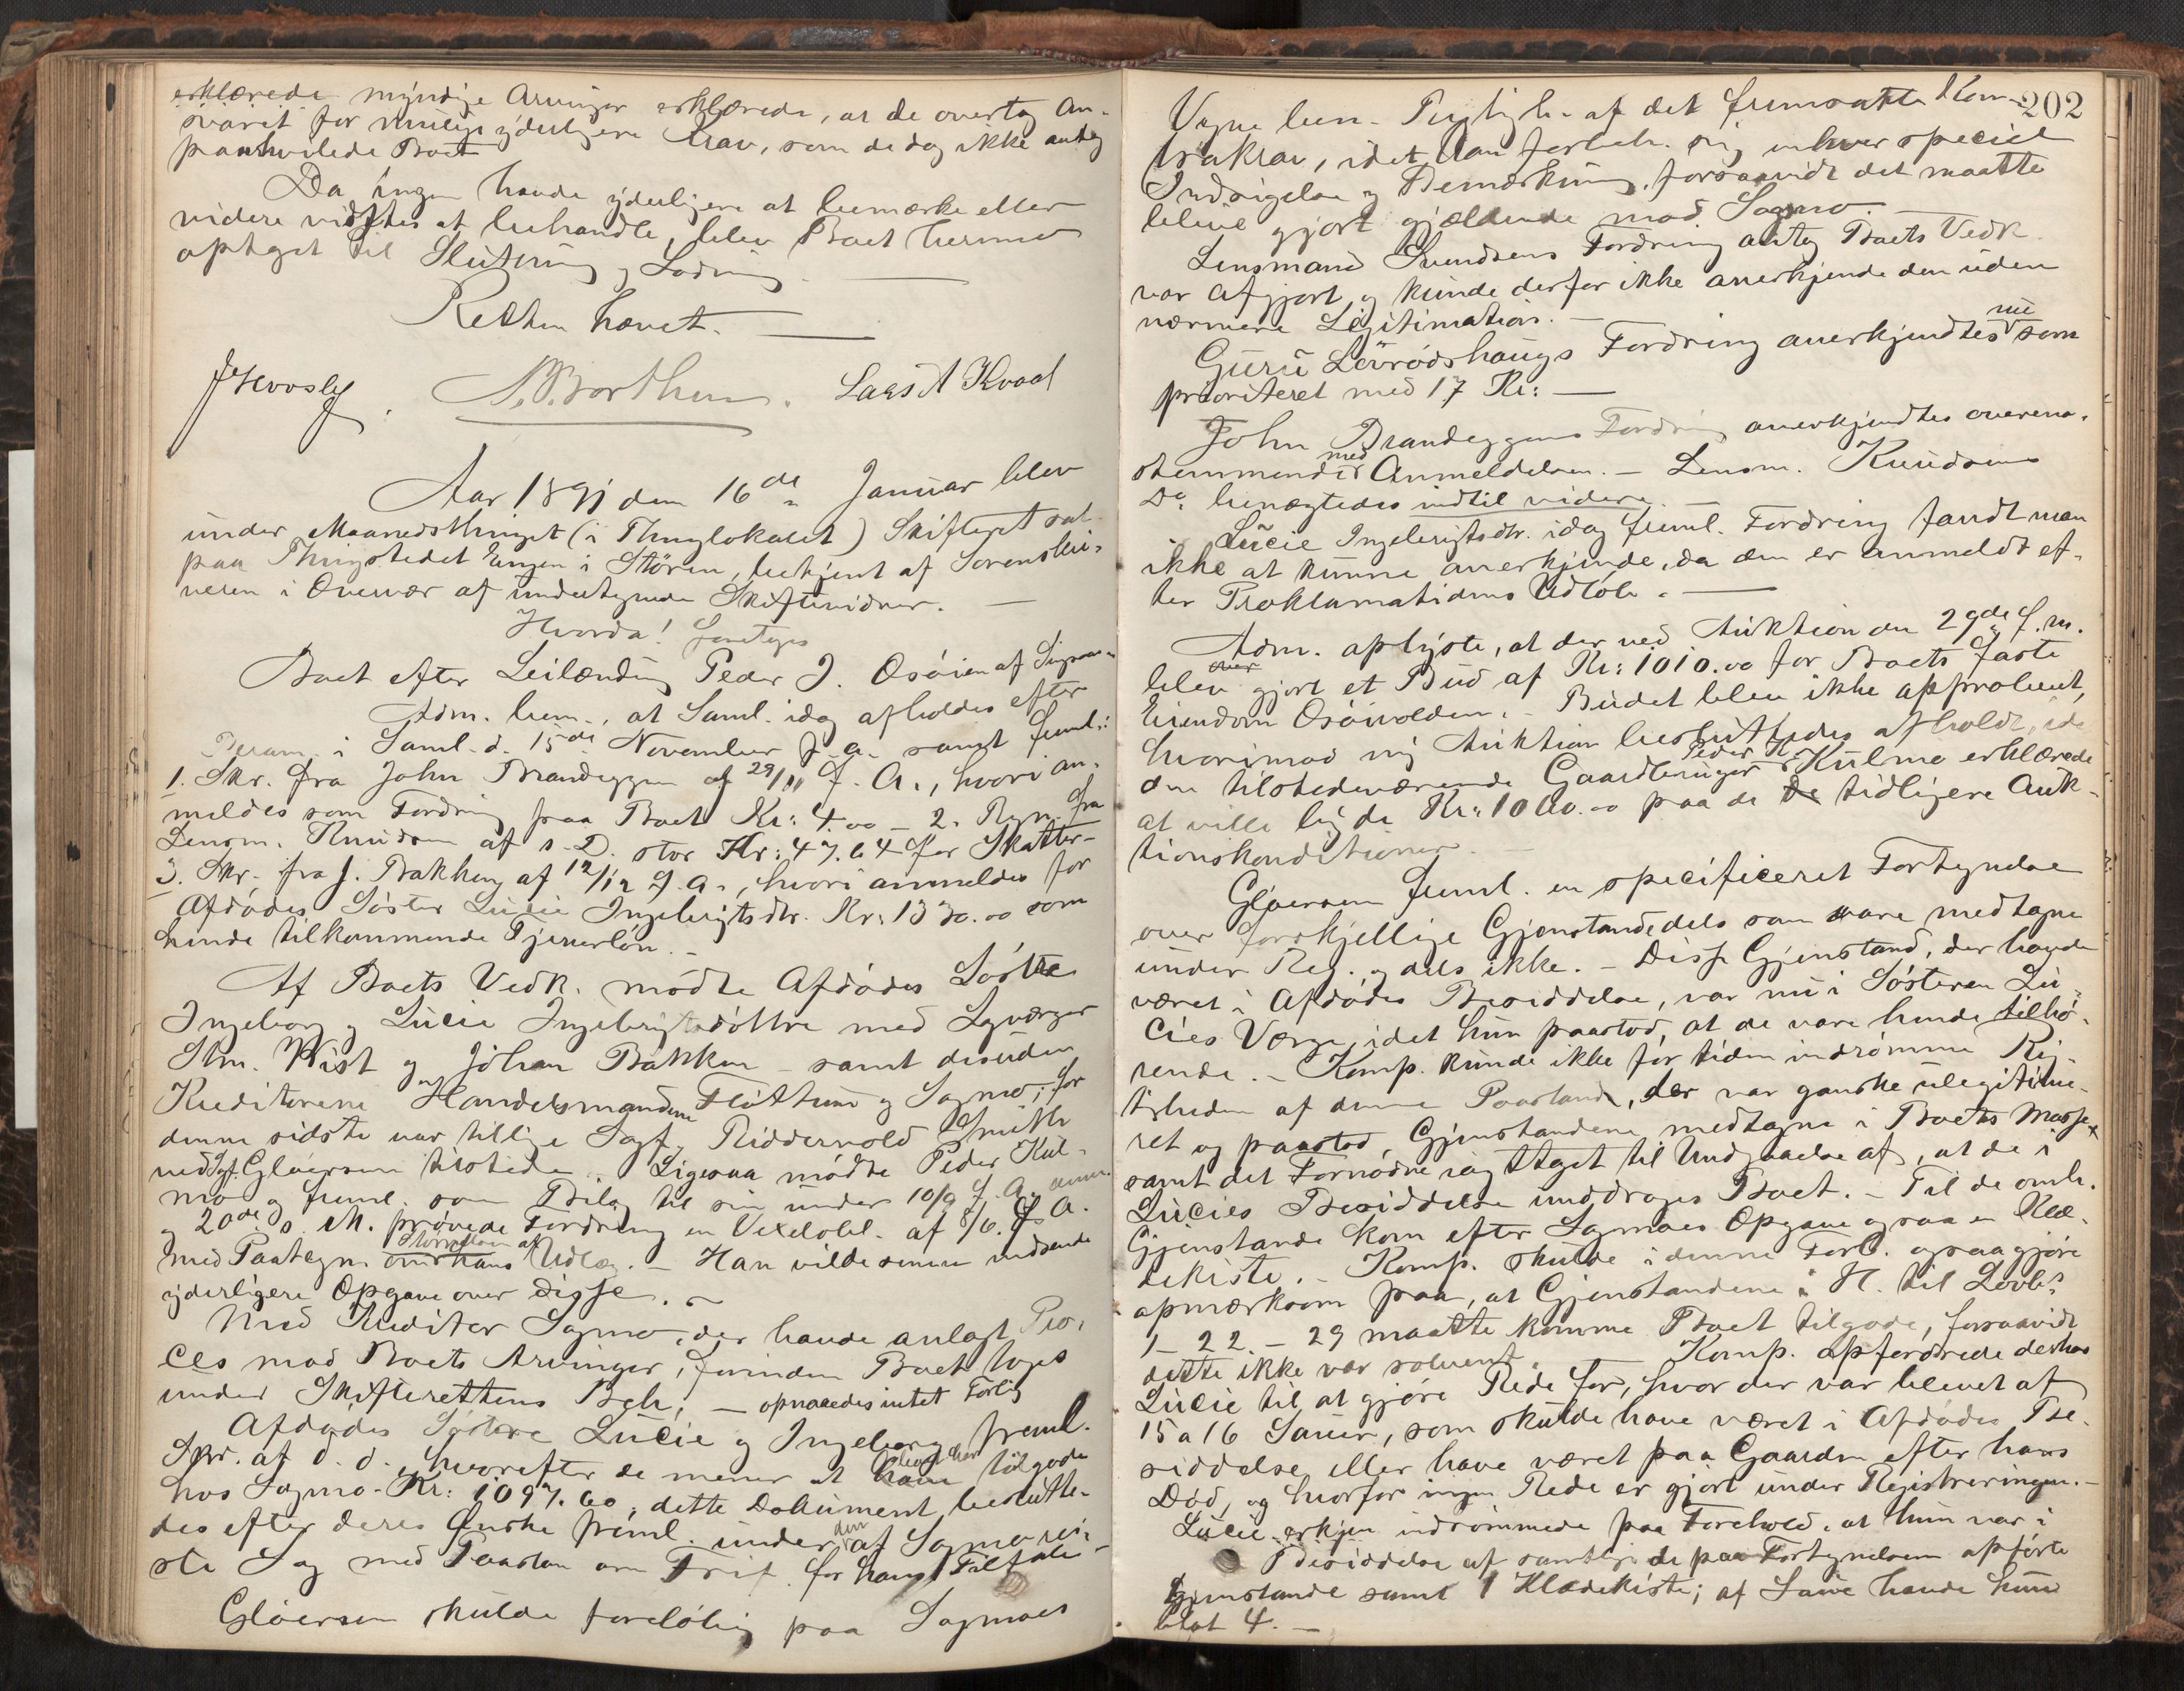 erklærede myndige Arvinger erklærede, at de overtog An-
svaret for mulige yderligere Krav, som de dog ikke antog
paahvilede Boet
Da Ingen havde yderligere at bemærke eller
videre vidstes at behandle, blev Boet herned
optaget til Slutning og Lodning.
Retten hævet.
Lars A Kvaal
Aar 1891 den 16de Januar blev
under Maanedsthinget (i Thinglokalet) Skifteret sat
paa Thingstedet Engen i Støren, betjent af Sorenskri-
veren i Overvær af undertegnede Skiftevidner.
Hvorda! foretoges
Boet efter Leilænding Peder J. Osøien af
Adm. bem., at Saml. idag afholdes efter
Beram. i Saml. d. 15de November f. A. samt freml:
1. Skr. fra John Brandeggen af 29/11 f. A., hvori an-
meldes som Fordring paa Boet Kr: 4.00 – 2. Regn. fra
Lensm. Knudsen af s. D. stor Kr: 47.64 for Skatter –
3. Skr. fra J. Bakken af 12/12 f. A., hvori anmeldes for
Afdødes Søster Lucie Ingebrigtsdtr. Kr: 1330.00 som
hende tilkommende Tjenerløn. –
Af Boets Vedk. mødte Afdødes Søstre
Ingeborg og Lucie Ingebrigtsdøttre med Lagværger
Wist og Johan Bakken – samt desuden
Kreditorerne Handelsmændene Fløttum og Sagmo; for
denne sidste var tillige Sagf. Riddervold Smith
ved Sagf. Gløersen tilstede. Ligesaa mødte Peder Kul-
mo og freml. som Bilag til sin under 10/9 f. A. anm.
og 20de s. M. prøvede Fordring en Vexelobl. af 8/6. f. A.
med Paategn. om hans Udlæg. – Han vilde senere indsende
yderligere Opgave over disse. –
Med Kreditor Sagmo, der havde anlagt Pro-
ces mod Boets Arvinger, forinden Boet toges
under Skifterettens Beh., – opnaaedes intet Forlig
Afdødes Søstre Lucie og Ingeborg freml.
Skr. af d. d., hvorefter de mener at have tilgode
hos Sagmo Kr: 1097.60; dette Dokument beslutte-
des efter deres Ønske freml. under den af Sagmo rei-
ste Sag med Paastan om Frif. for hans Tiltale
Gløersen skulde foreløbig paa Sagmoes
202
Vegne af det fremsatte Kon-
trakrav, idet han forbeh. sig enhver speciel
Indsigelse og Bemærkning, forsaavidt det maatte
blive gjort gjældende mod Sagmo. –
Lensmand Svendsens Fordring antog Boets Vedk.
var afgjort, og kunde derfor ikke anerkjende den uden
nærmere Legitimation. –
Guru Løvrødshaugs Fordring anerkjendtes nu som
prioriteret med 17 Kr: –
John Brandeggens Fordring anerkjendtes overens-
stemmende med Anmeldelsen. – Lensm. Knudsens
Do benægtedes indtil videre. –
Lucie Ingebrigtsdtr. idag freml. Fordring fandt man
ikke at kunne anerkjende, da den er anmeldt ef-
ter Proklamationens Udløb. –
Adm. oplyste, at der ved Auktion den 29de f. m.
blev gjort et Bud af Kr: 1010.00 for Boets faste
Eiendom Osøivolden. – Budet blev ikke approberet,
hvorimod ny Auktion besluttedes afholdt, ide
den tilstedeværende Gaardbruger Peder Kulmo erklærede
at ville byde Kr: 1000.00 paa de tidligere Auk-
tionskonditioner. –
Gløersen freml. en specificeret Fortegnelse
over forskjellige Gjenstande dels som vare medtagne
under Reg. og dels ikke. – Disse Gjenstand, der havde
været i Afdødes Besiddelse, var nu i Søsteren Lu-
cies Værge, idet hun paastod, at de vare hende tilhø-
rende. – Komp. kunde ikke for tiden indrømme Rig-
tigheden af denne Paastand, der var ganske ulegitime-
ret og paastod, Gjenstandene medtagne i Boets Masse
samt det Fornødne iagttaget til Undgaaelse af, at de i
Lucies Besiddelse unddroges Boet. – Til de omh.
Gjenstande kom efter Sagmoes Opgave ogsaa en Klæ-
dekiste. – Komp. skulde i denne Forb. ogsaa gjøre
opmærksom paa, at Gjenstandene i H. til Lovbs
1 – 22 – 29 maatte komme Boet tilgode, forsaavidt
dette ikke var solvent. – Komp. opfordrede derhos
Lucie til at gjøre Rede for, hvor der var blevet af
15 a 16 Sauer, som skulde have været i Afdødes Be-
siddelse eller have været paa Gaarden efter hans
Død, og hvorfor ingen Rede er gjort under Registreringen. –
Lucie indrømmede paa Forehold, at hun var i
Besiddelse af samtlige de paa Fortegnelsen opførte
Gjenstande samt 1 Klædekiste; af Sauer havde hun
blot 4. –